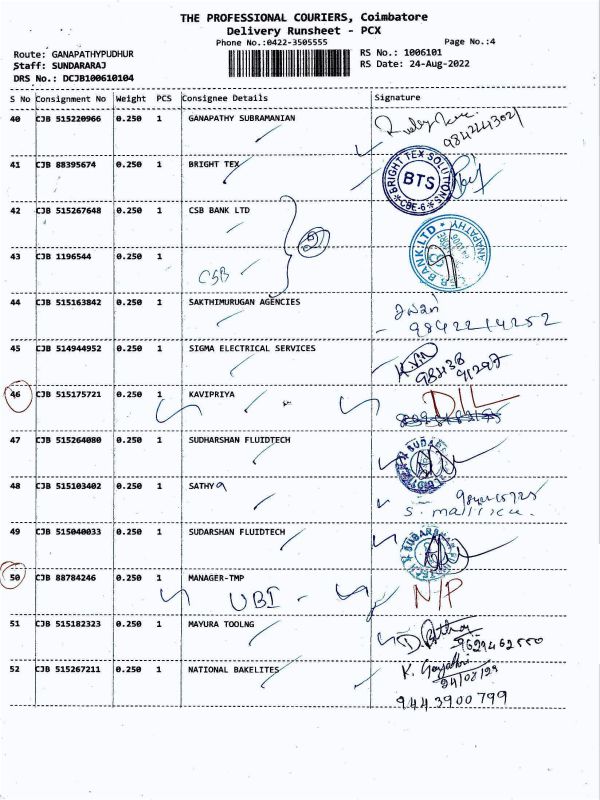 THE PROFESSIONAL COURIERS, Coimbatore
Delivery Runsheet - PCX
Phone No.:0422-3505555 Page No.:4
Route: GANAPATHYPUDHUR RS No.: 1006101
Staff: SUNDARARAJ RS Date: 24-Aug-2022
DRS No.: DCJB100610104
S No Consignment No Weight PCS Consignee Details Signature
40 CJB 515220966 0.250 1 GANAPATHY SUBRAMANIAN
9842443021
41 CJB 88395674 0.250 1 BRIGHT TEX
BRIGHT TEX SOLUTIONS
BTS
CBE-6
42 CJB 515267648 0.250 1 CSB BANK LTD
43 CJB 1196544 0.250 1
CSB
BANK LTD
44 CJB 515163842 0.250 1 SAKTHIMURUGAN AGENCIES
9842214252
45 CJB 514944952 0.250 1 SIGMA ELECTRICAL SERVICES
98438
91297
46 CJB 515175721 0.250 1 KAVIPRIYA D/L
47 CJB 515264080 0.250 1 SUDHARSHAN FLUIDTECH
48 CJB 515103402 0.250 1 SATHYA
49 CJB 515040033 0.250 1 SUDARSHAN FLUIDTECH
50 CJB 88784246 0.250 1 MANAGER-TMP
UBI - N/P
51 CJB 515182323 0.250 1 MAYURA TOOLNG
9629462550
52 CJB 515267211 0.250 1 NATIONAL BAKELITES K. Gayathri
24/08/22
9443900799